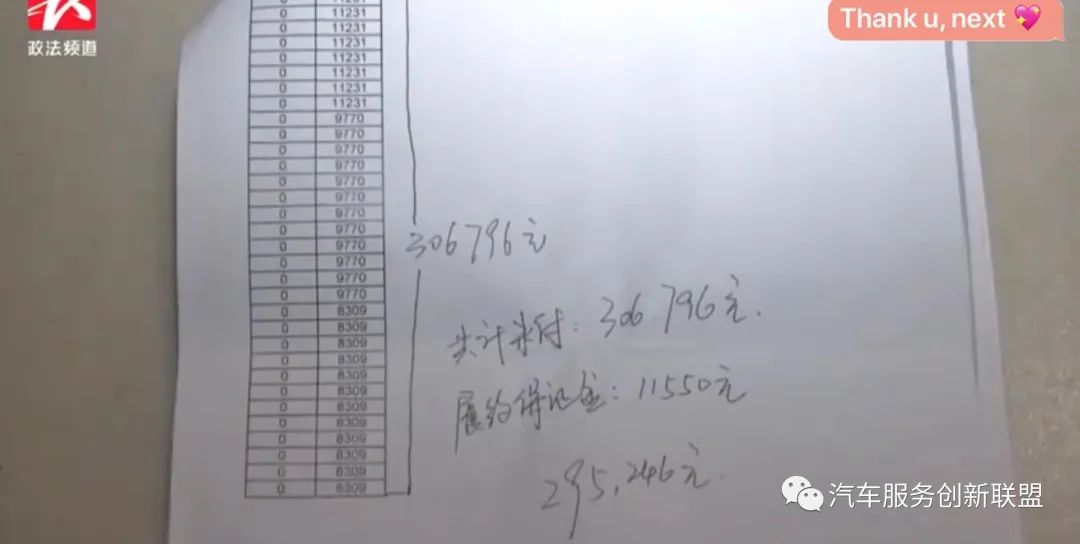 政法频道
Thank u, next 💖
0 11231
0 11231
0 11231
0 11231
0 11231
0 11231
0 11231
0 9770
0 9770
0 9770
0 9770
0 9770
0 9770
0 9770
0 9770
0 9770
0 9770
0 9770
0 9770
0 8309
0 8309
0 8309
0 8309
0 8309
0 8309
0 8309
0 8309
0 8309
0 8309
0 8309
0 8309
306796元
共计未付：306.796元.
履约保证金：11550元
295,246元.
汽车服务创新联盟